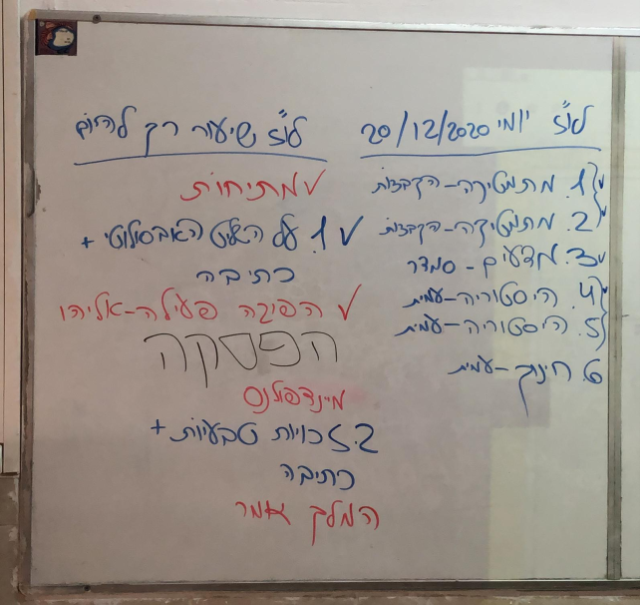 לו"ז יומי 20/12/2020
1. מתמטיקה - הקבצות
2. מתמטיקה - הקבצות
3. מדעים - סמדר
4. היסטוריה - עמית
5. היסטוריה - עמית
6. חינוך - עמית
לו"ז שיעור רק להיום
✓ מתיחות
✓ 1. על השליט האבסולוטי +
כתיבה
✓ הפיכה פעילה - אליהו
הפסקה
מיינדפולנס
2. זכויות טבעיות +
כתיבה
המלך אמר